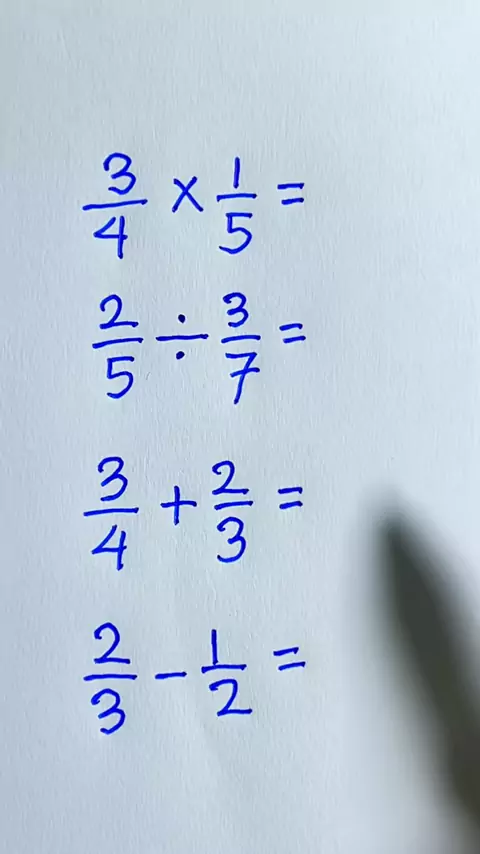 3/4 × 1/5 =
2/5 ÷ 3/7 =
3/4 + 2/3 =
2/3 - 1/2 =